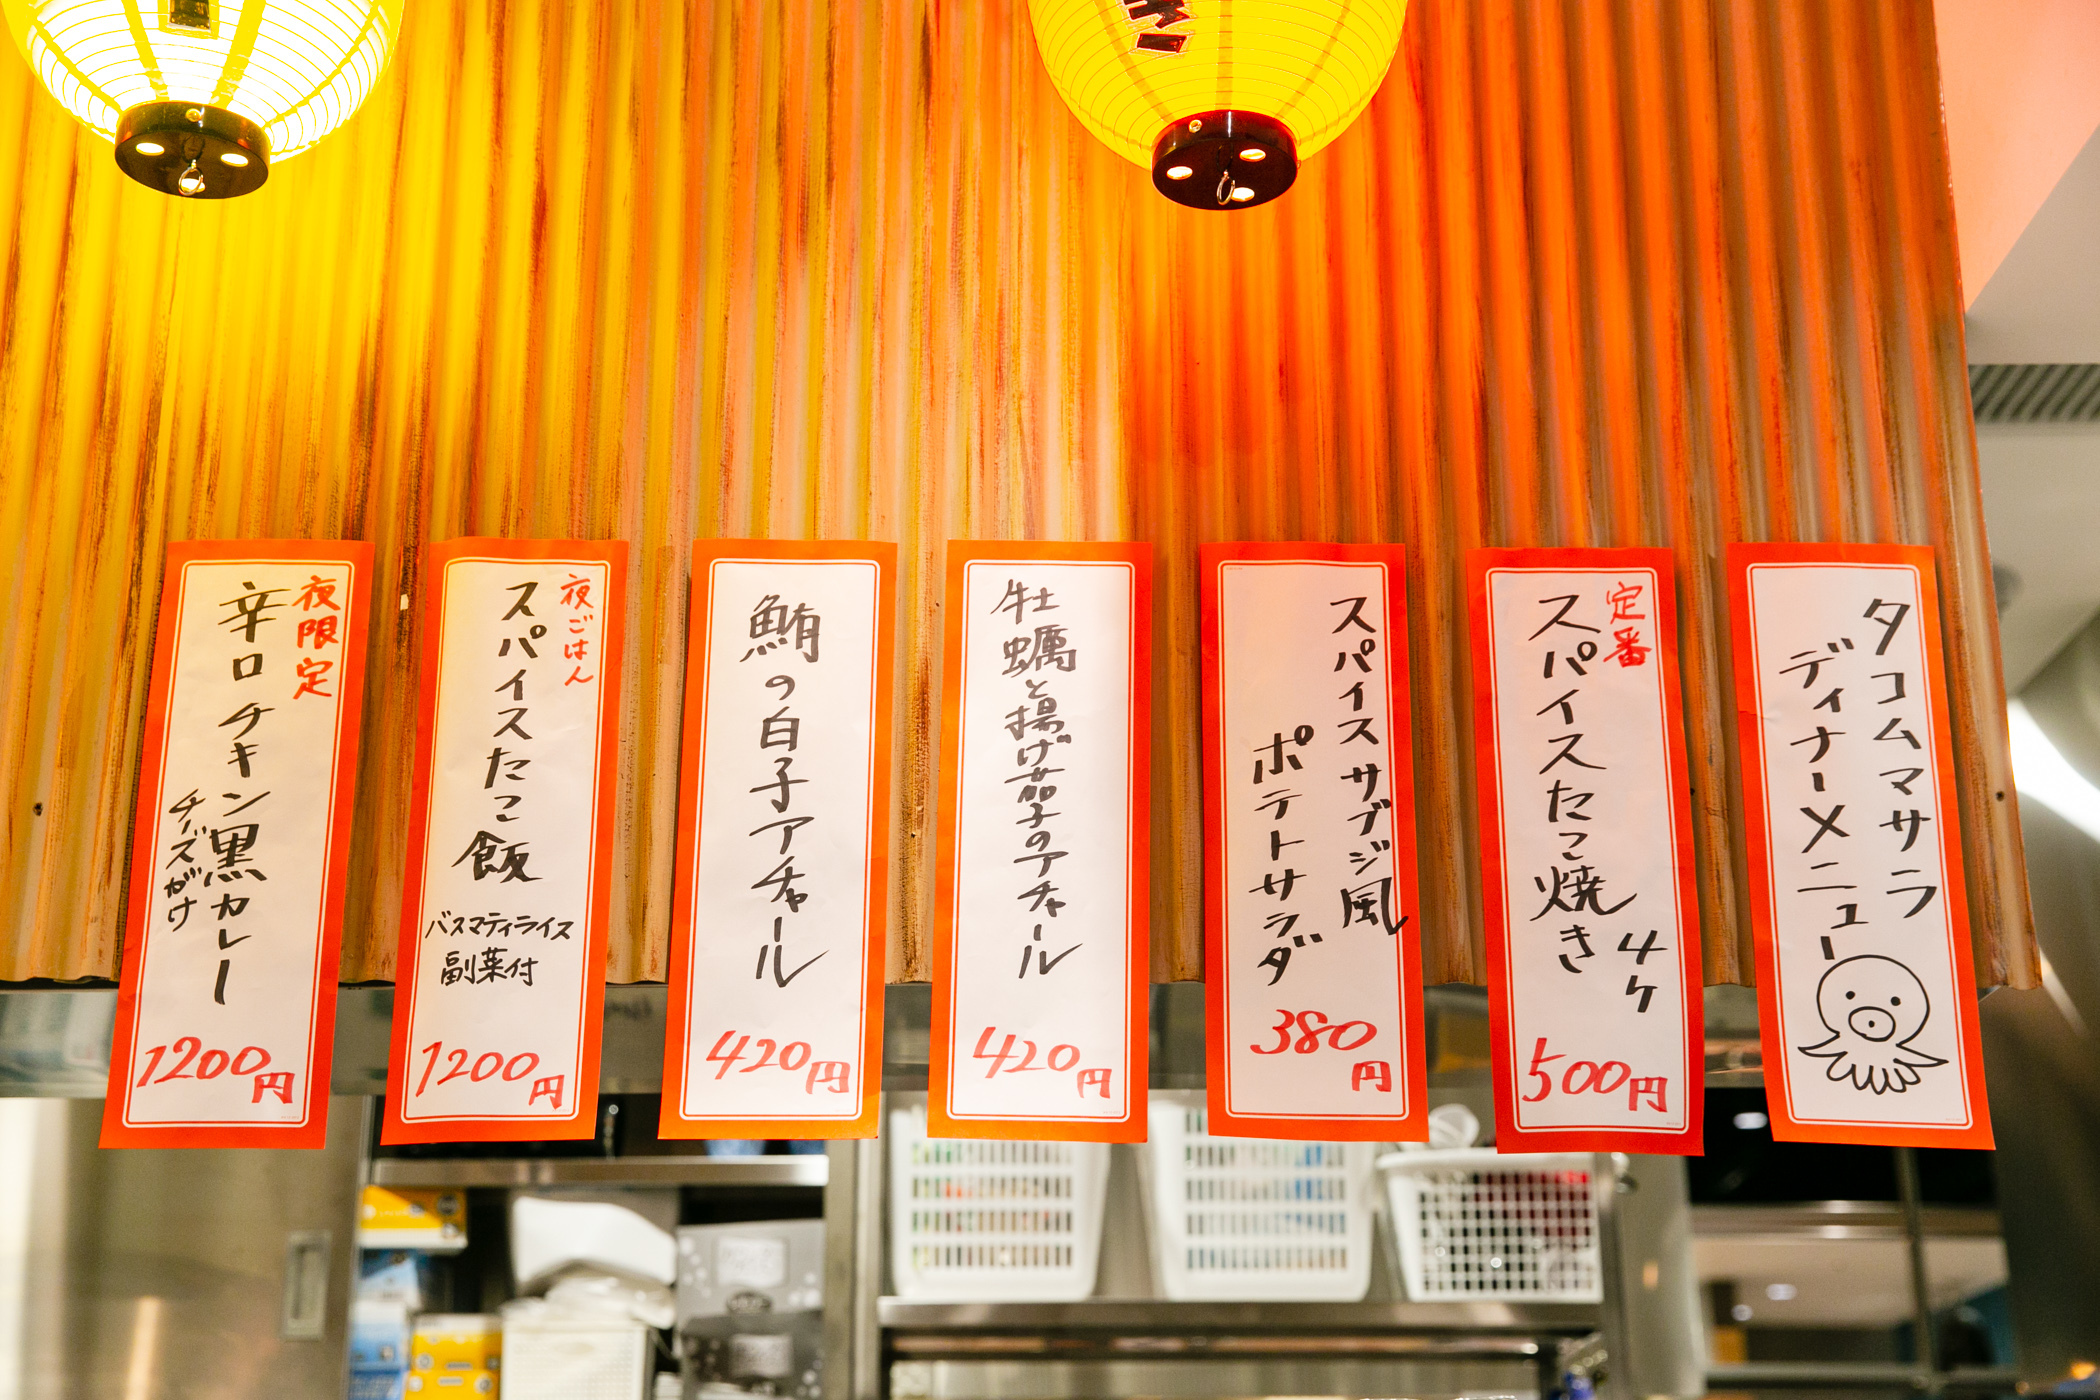 タコムマサラ
ディナーメニュー
定番
スパイスたこ焼き
4ケ
500円
スパイスサブジ風
ポテトサラダ
380円
牡蠣と揚げ茄子のアチャール
420円
鮪の白子アチャール
420円
夜ごはん
スパイスたこ飯
バスマティライス
副菜付
1200円
夜限定
辛口チキン黒カレー
チーズがけ
1200円